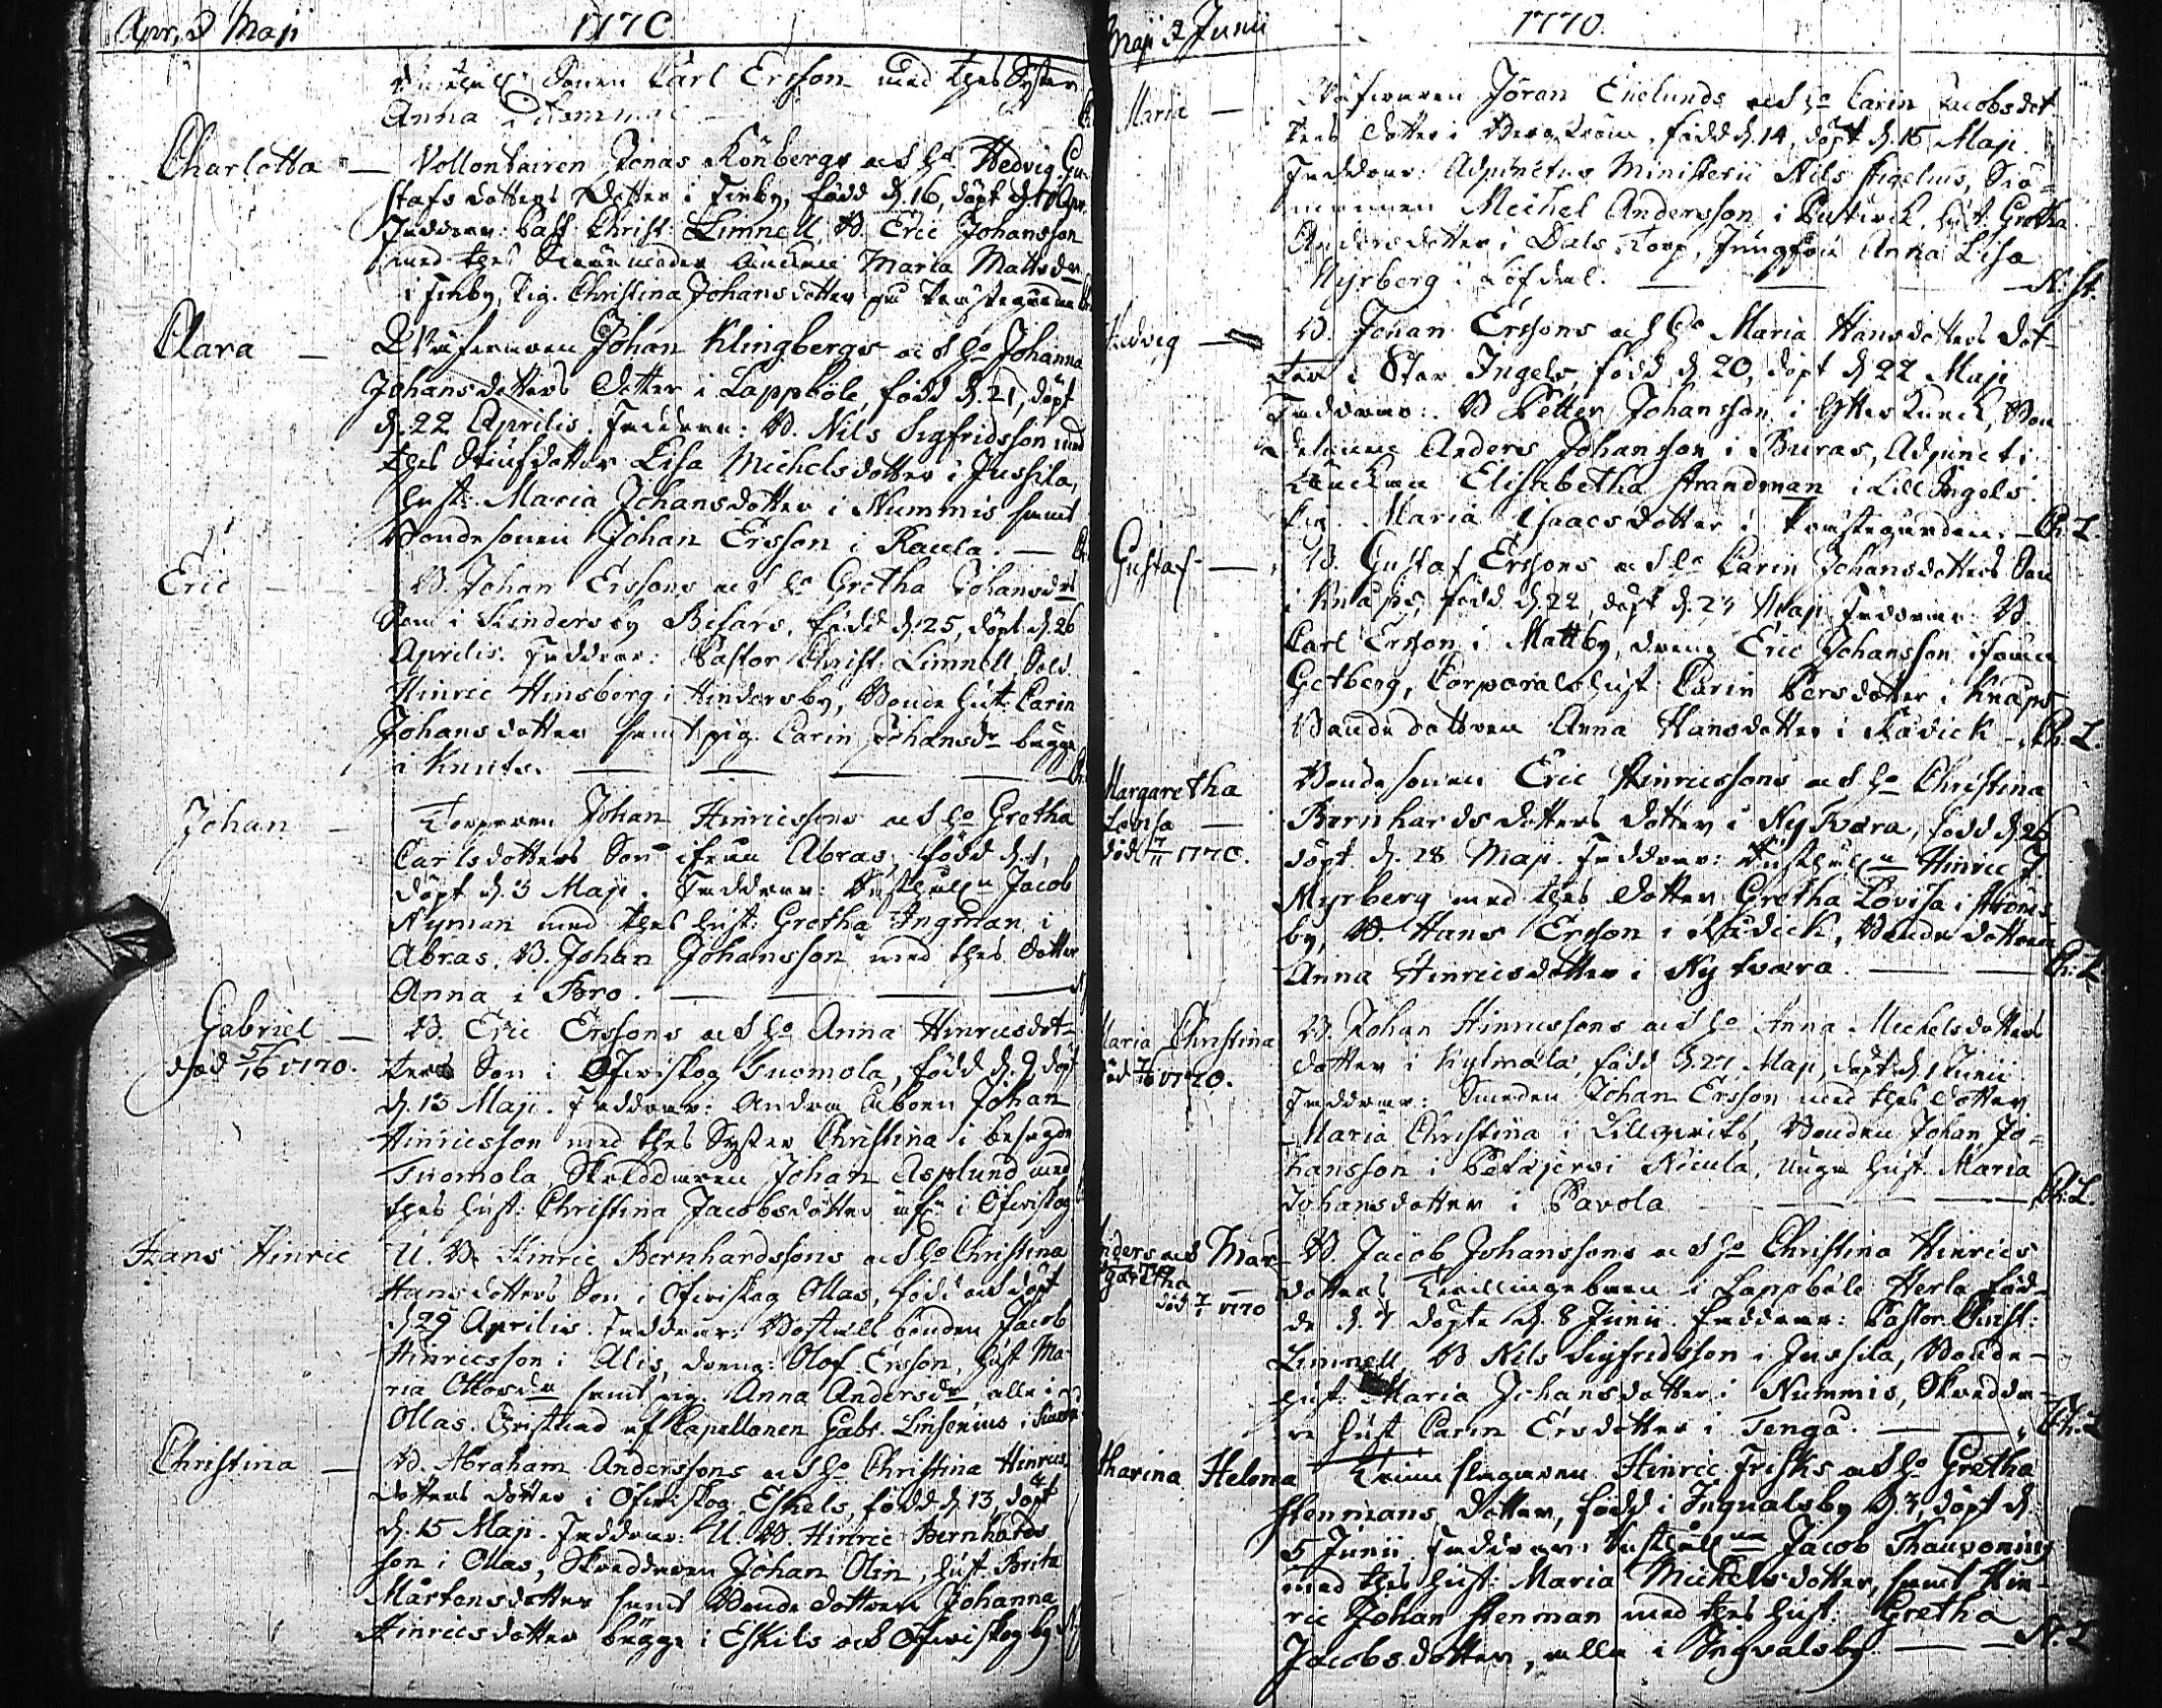 Apr, & Maji 1770
Sonen Carl Ersson med thes Syster
Anna
Charlotta — Vollontairen Jonas Rönbergs och ho Hedvig Gu-
stafs dotters Dotter i Finby, född d. 16, döpt d. 18 Apr.
Faddrar: Past Christ: Limnell, B. Eric Johansson
med thes Maria Mattsdr
i Finby, Pig. Christina Johansdotter på
Clara — Johan Klingbergs och ho Johanna
Johansdotters Dotter i Lappböle, född d. 21, döpt
d. 22 Aprilis. Faddrar: B. Nils Sigfridsson med
thes Stiufdotter Lisa Michelsdotter i Jussila,
hust: Maria Johansdotter i Nummis samt
Bondesonen Johan Ersson i Raula. —
Eric — B. Johan Erssons och ho Gretha Johansdrs
Son i Hindersby Besars, född d. 25, döpt d. 26
Aprilis. Faddrar: Pastor Christ: Limnell, Sold.
Hinric Hinsberg i Hindersby, Bonde hust: Carin
Johansdotter samt pig. Carin Johansdr begge
i Knuts. —
Johan — Torparen Johan Hinricssons och ho Gretha
Carlsdotters Son ifrån Abras, född d. 1,
döpt d. 3 Maji. Faddrar: Jacob
Nyman med thes hust: Gretha Ingman i
Abras, B. Johan Johansson med thes Dotter
Anna i Bro. —
Gabriel — B. Eric Erssons och ho Anna Hinricsdot-
död 5/16 1770. ters Son i Öfwiskog Tuomola, född d. 9 döpt
d. 13 Maji. Faddrar: Andra Åboen Johan
Hinricsson med thes Syster Christina i besagde
Tuomola, Skräddaren Johan Asplund med
thes hust: Christina Jacobsdotter i Öfwiskog
Hans Hinric U. B. Hinric Bernhardssons och ho Christina
Hansdotters Son i Öfwiskog Ollas, född och döpt
d. 29 Aprilis. Faddrar: Boställsbonden Jacob
Hinricsson i Alis, dreng: Olof Ersson, hust Ma-
ria Ottosdr samt pig. Anna Andersdr, alle i
Ollas. Christnad af Capellanen Gabr. Linsenius i
Christina — B. Abraham Anderssons och ho Christina Hinrics
dotters dotter i Öfwiskog Eskels, född d. 13, döpt
d. 15 Maji. Faddrar: U. B. Hinric Bernhards
son i Ollas, Skräddaren Johan Olin, hust. Brita
Mårtensdotter samt Bonde dottren Johanna
Hinricsdotter begge i Eskils och Öfwiskog by
Maji & Junii 1770.
Maria — Jöran Enelunds och ho Carin Jacobsdot
ters Dotter i född d. 14, döpt d. 15 Maji.
Faddrar: Adjunctus Ministerii Nils Stigelius, Siö-
mannen Michel Andersson i hust. Gretha
Andersdotter i Dals Torp, Jungfru Anna Lisa
Myrberg i Löfdal. — N: St.
Hedvig — B. Johan Erssons och ho Maria Hansdotters Dot-
ter i Stor Ingels, född d. 20, döpt d. 22 Maji
Faddrar: B Petter Johansson i Bon
Anders Johansson i Buras, Adjuncts
Elisabetha Strandman i Lill Ingels
Pig. Maria Isaacsdotter i Prästegården. — Ch: L.
Gustaf — B. Gustaf Erssons och ho Carin Johansdotters Son
i Knaps, född d. 22, döpt d. 23 Maji Faddrar: B.
Carl Ersson i Mattby, dreng Eric Johansson ifrån
Getberg, Corporals hust: Carin Persdotter i Knaps
Bonde dottren Anna Hansdotter i Rådick — Ch: L.
Margaretha Bondesonen Eric Hinricssons och ho Christina
Lovisa — Bernhardsdotters dotter i Ny Tvara, född d. 26
död 7/11 1770. döpt d. 28 Maji. Faddrar: Hinric J.
Myrberg med thes Dotter Gretha Lovisa i Ströms-
by, B. Hans Ersson i Rådick, Bonde dottren
Anna Hinricsdotter i Ny Tvara. — Ch: L
Maria Christina B. Johan Hinricssons och ho Anna Michelsdotters
död 7/16 1770. dotter i Kylmälä, född d. 27 Maji, döpt d. 1 Junii
Faddrar: Smeden Johan Ersson med thes dotter
Maria Christina i Bonden Johan Jo-
hansson i Petäjervi Nicula, unga hust. Maria
Johansdotter i Pavola — Ch: L.
Anders och Mar- B. Jacob Johanssons och ho Christina Hinrics
garetha dotters Twillingebarn i Lappböle Herla, föd-
död 7/7 1770 de d. 7 döpte d. 8 Junii. Faddrar: Pastor Christ:
Limnell, B. Nils Sigfridsson i Jussila, Bonde-
hust: Maria Johansdotter i Nummis, Skrädda-
re hust Carin Ersdotter i Tenga. — Ch: L
Catharina Helena Hinric Frisks och ho Gretha
Stenmans Dotter, född i Ingvalsby d. 3, döpt d.
5 Junii Faddrar: Jacob Thauvoning
med thes hust: Maria Michelsdotter, samt Hin-
ric Johan Stenman med thes hust: Gretha
Jacobsdotter, alla i Ingvalsby — N: L